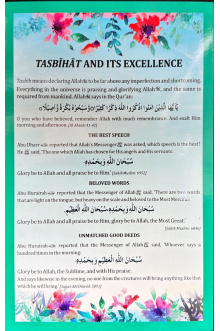 TASBĪHĀT AND ITS EXCELLENCE
Tasbih means declaring Allah to be far above any imperfection and shortcoming.
Everything in the universe is praising and glorifying Allah, and the same is
required from mankind. Allah says in the Qur'an:
يَا أَيُّهَا الَّذِينَ آمَنُوا اذْكُرُوا اللَّهَ ذِكْرًا كَثِيرًا وَسَبِّحُوهُ بُكْرَةً وَأَصِيلًا
O you who believed, remember Allah with much remembrance. And exalt Him
morning and afternoon.
THE BEST SPEECH
Abu Dharr reported that Allah's Messenger ﷺ was asked, which speech is the best?
He ﷺ said, 'The one which Allah has chosen for His angels and His servants:
سُبْحَانَ اللَّهِ وَبِحَمْدِهِ
Glory be to Allah and all praise be to Him.'
BELOVED WORDS
Abu Hurairah reported that the Messenger of Allah ﷺ said, 'There are two words
that are light on the tongue, but heavy on the scale and beloved to the Most Merciful:
سُبْحَانَ اللَّهِ وَبِحَمْدِهِ سُبْحَانَ اللَّهِ الْعَظِيمِ
Glory be to Allah and all praise be to Him; glory be to Allah, the Most Great.'
UNMATCHED GOOD DEEDS
Abu Hurairah reported that the Messenger of Allah ﷺ said, 'Whoever says a
hundred times in the morning:
سُبْحَانَ اللَّهِ الْعَظِيمِ وَبِحَمْدِهِ
Glory be to Allah, the Sublime, and with His praise.
And says likewise in the evening, no one from the creatures will bring anything like that
which he will bring.'